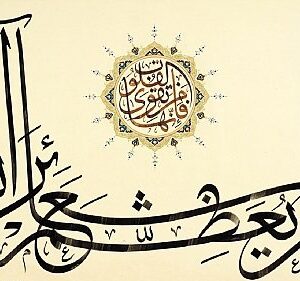 يُعَظِّمْ شَعَائِرَ
فإنها من تقوى القلوب